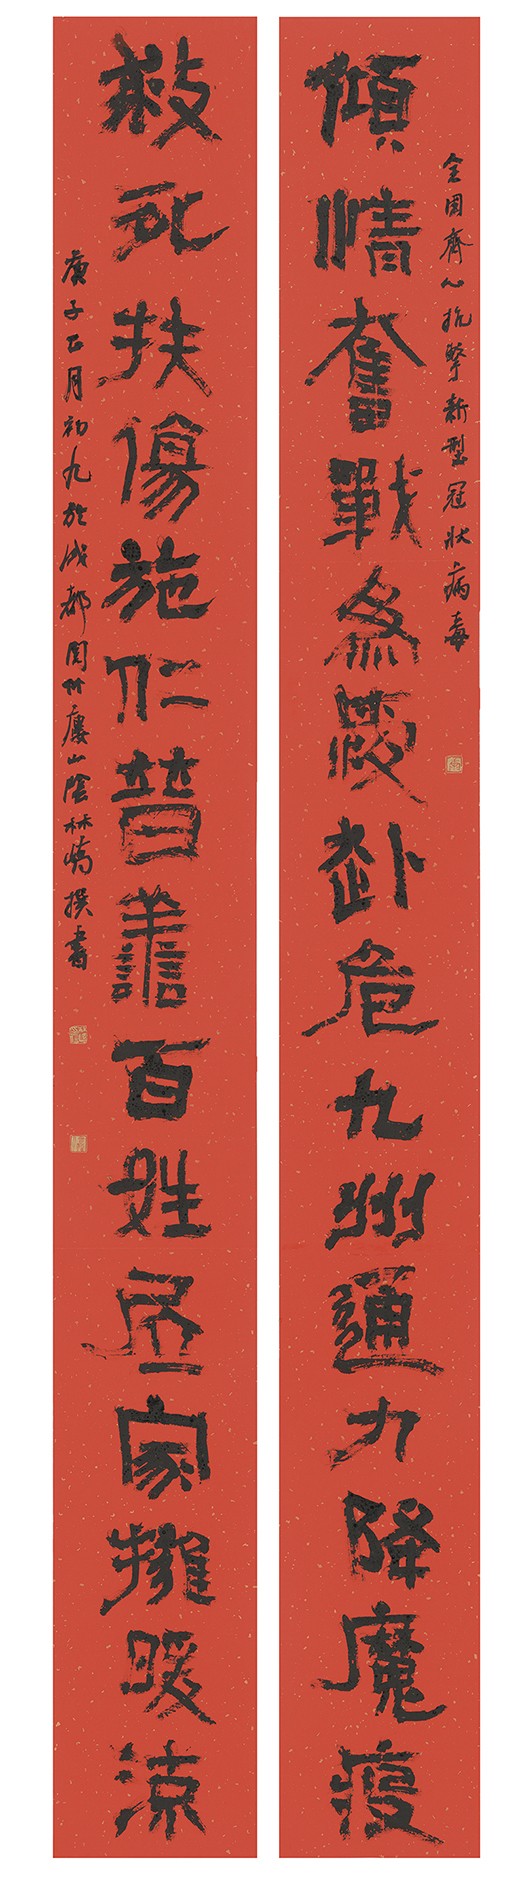 全國齊心抗擊新型冠狀病毒
傾情奮戰為赴危九州通力降魔疫
救死扶傷施仁普譱百姓家擁暖涼
庚子正月初九於成都閒竹廔山陰林嶠撰書